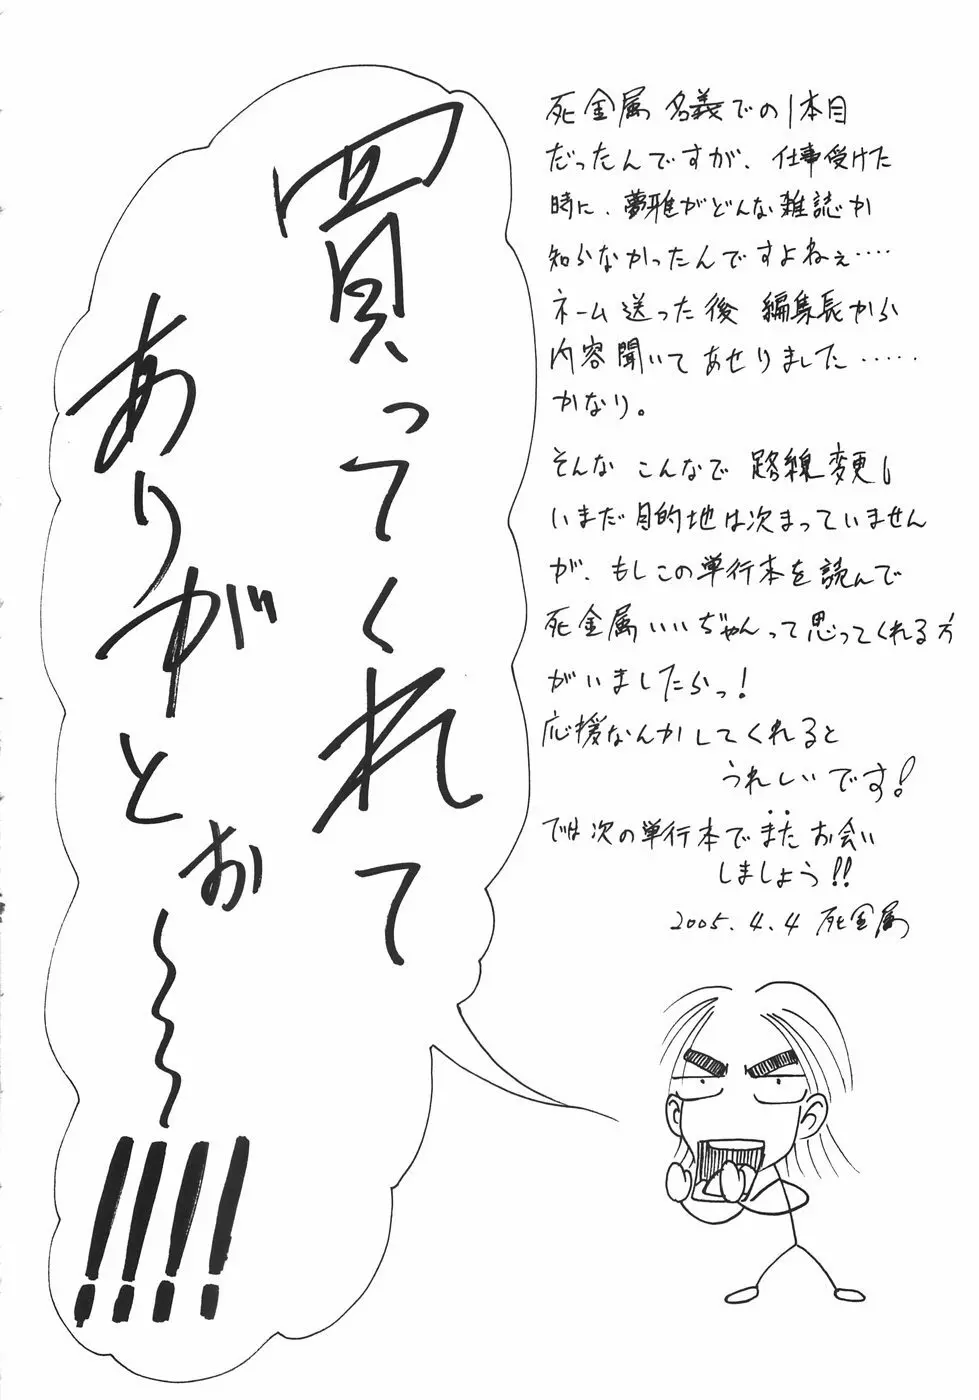 死金属名義での1本目
だったんですが、仕事受けた
時に、夢雅がどんな雑誌か
知らなかったんですよねぇ‥‥
ネーム送った後 編集長から
内容聞いてあせりました‥‥‥
かなり。
そんなこんなで 路線変更し
いまだ目的地は決まっていません
が、もしこの単行本を読んで
死金属いいぢゃんって思ってくれる方
がいましたらっ!
応援なんかしてくれると
うれしいです!
では次の単行本でまたお会い
しましょう!!
2005.4.4 死金属
買ってくれて
ありがとぉ〜〜〜!!!!